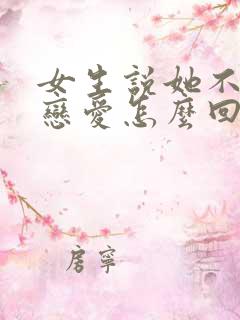 女生說她不
戀愛怎麼回
房寧